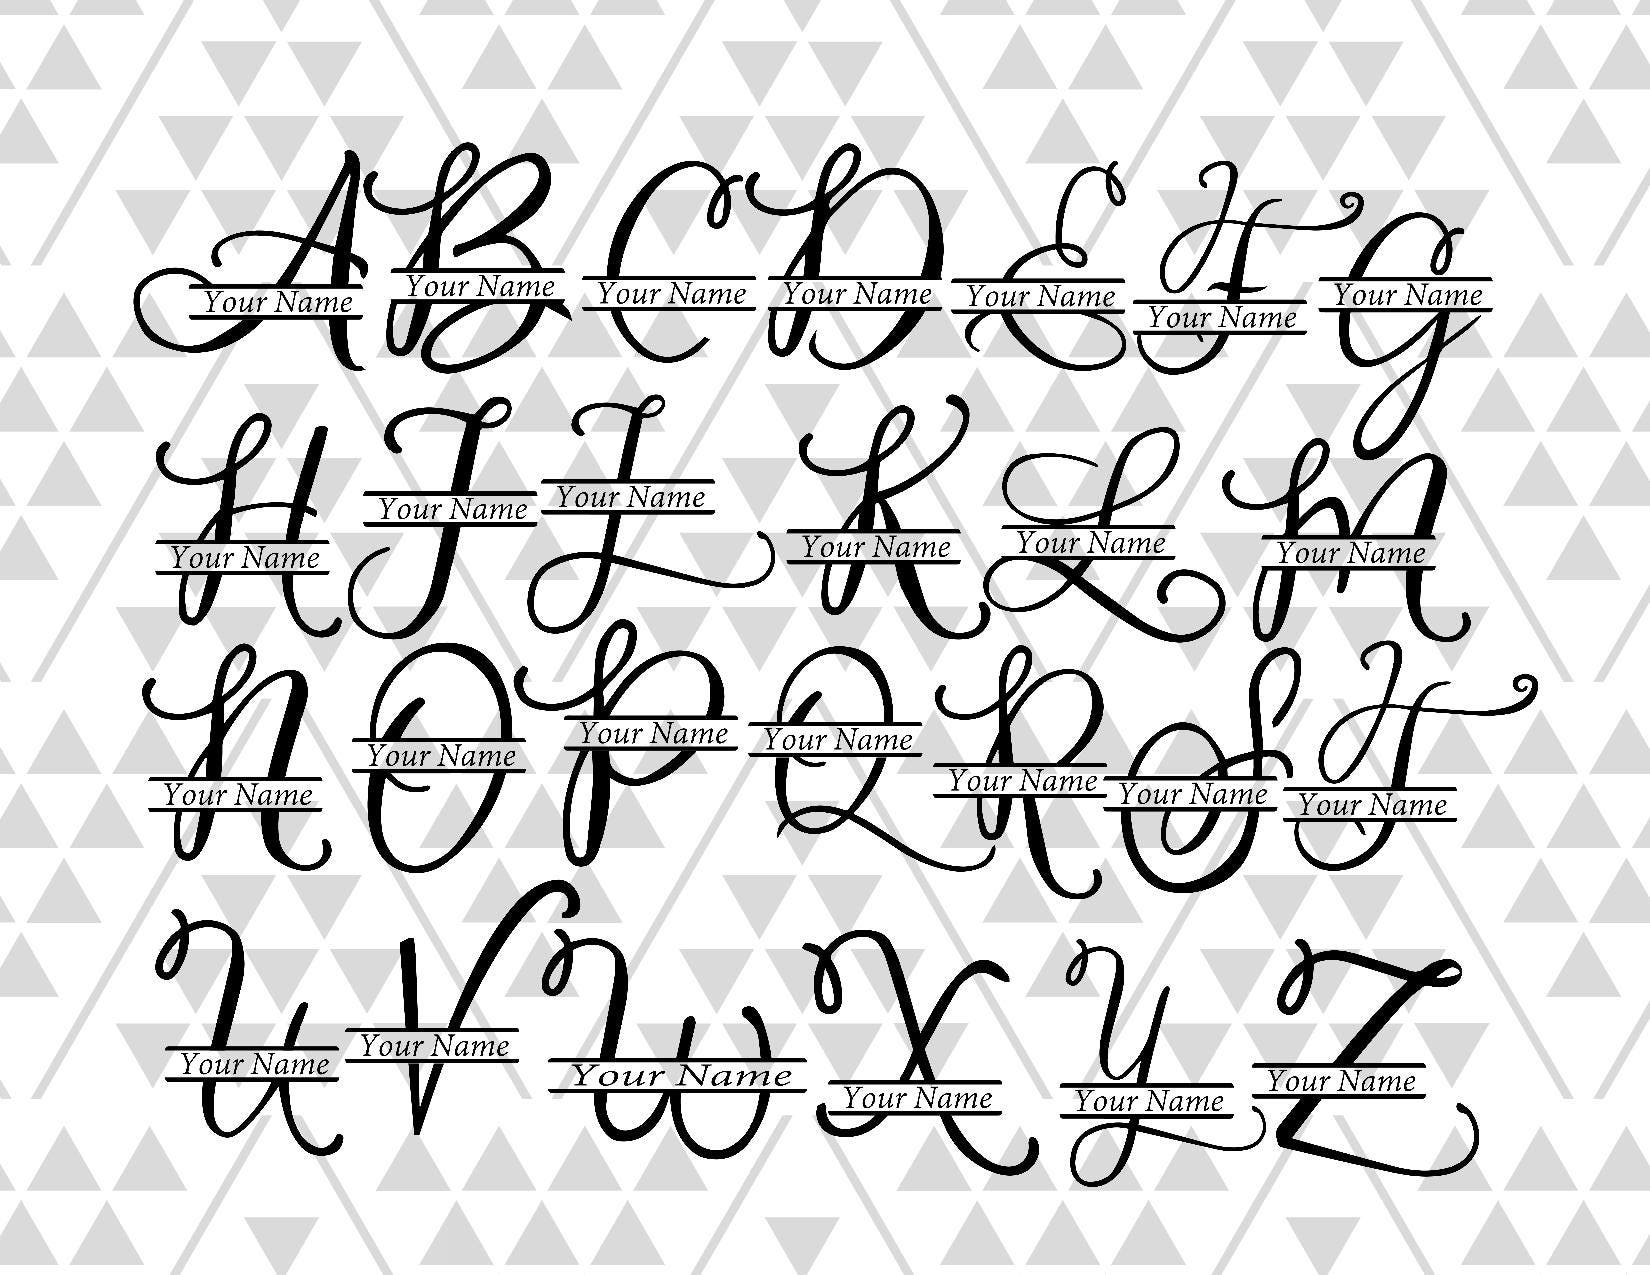 A B C D E F G
Your Name Your Name Your Name Your Name Your Name Your Name Your Name
H I J K L M
Your Name Your Name Your Name Your Name Your Name Your Name
N O P Q R S T
Your Name Your Name Your Name Your Name Your Name Your Name Your Name
U V W X Y Z
Your Name Your Name Your Name Your Name Your Name Your Name